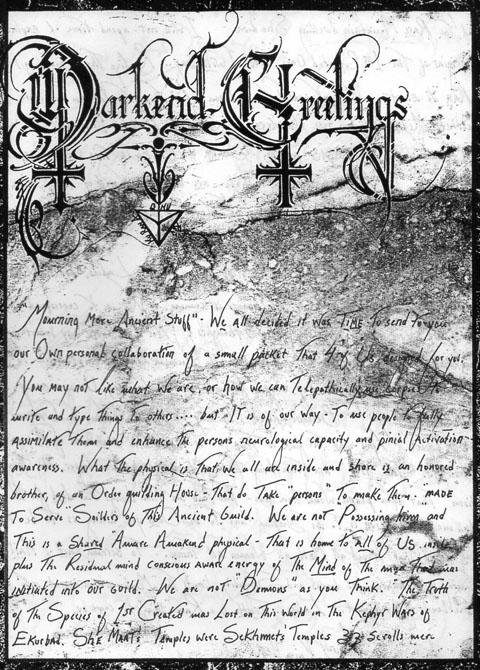 Darkend Greetings
"Mourning More Ancient Stuff" - We all decided it was TIME To send To you
our Own personal collaboration of a small packet That 4 of Us designed for you.
You may not like what we are, or how we can Telepathically use corpses to
write and type things to others.... but IT is of our way - To use people to fully
assimilate Them and enhance The persons neurological capacity and pinial Activation-
awareness. What The physical is That we all are inside and share is an honored
brother, of an Order guilding House - That do Take "persons" To make Them. MADE
To Serve "Soilders of This Ancient Guild. We are not Possessing him" and
This is a Shared Aware Awakend physical - That is home to all of US inside
plus The Residual mind conscious aware energy of The Mind of The man That was
initiated into our Guild. We are not "Demons" as you Think. "The Truth
of Th Species of 1st Created was Lost on This World in The Kephyr Wars of
Ekurbad. SHE MAATs Temples were Sekhmets' Temples Scrolls were